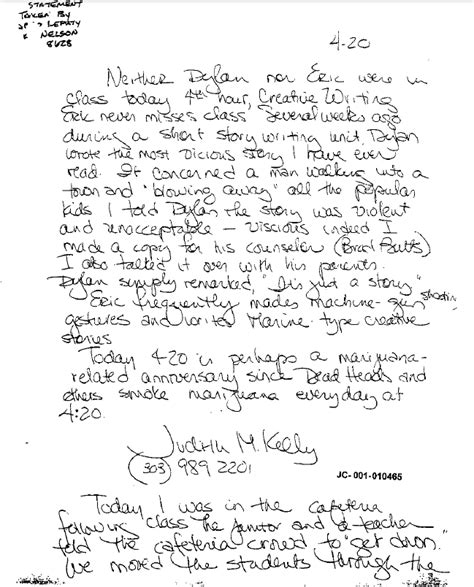 STATEMENT
TAKEN BY
DEPUTY
NELSON
4-20
Neither Dylan nor Eric were in
class today 4th hour, Creative Writing
Eric never misses class Several weeks ago
during a short story writing unit, Dylan
wrote the most vicious story I have ever
read. It concerned a man walking into a
town and "blowing away" all the popular
kids I told Dylan the story was violent
and unacceptable – viscious indeed I
made a copy for his counselor (Brad Butts)
I also talked it over with his parents.
Dylan simply remarked, "It's just a story"
Eric frequently mades machine-gun shooting
gestures and writes Marine-type creative
stories
Today 4-20 is perhaps a marijuana-
related anniversary since Dead Heads and
others smoke marijuana everyday at
4:20.
Judith M. Kelly
(303) 989 2201
JC-001-010465
Today I was in the cafeteria
following class The janitor and a teacher
told the cafeteria crowd to "get down.
We moved the students through the